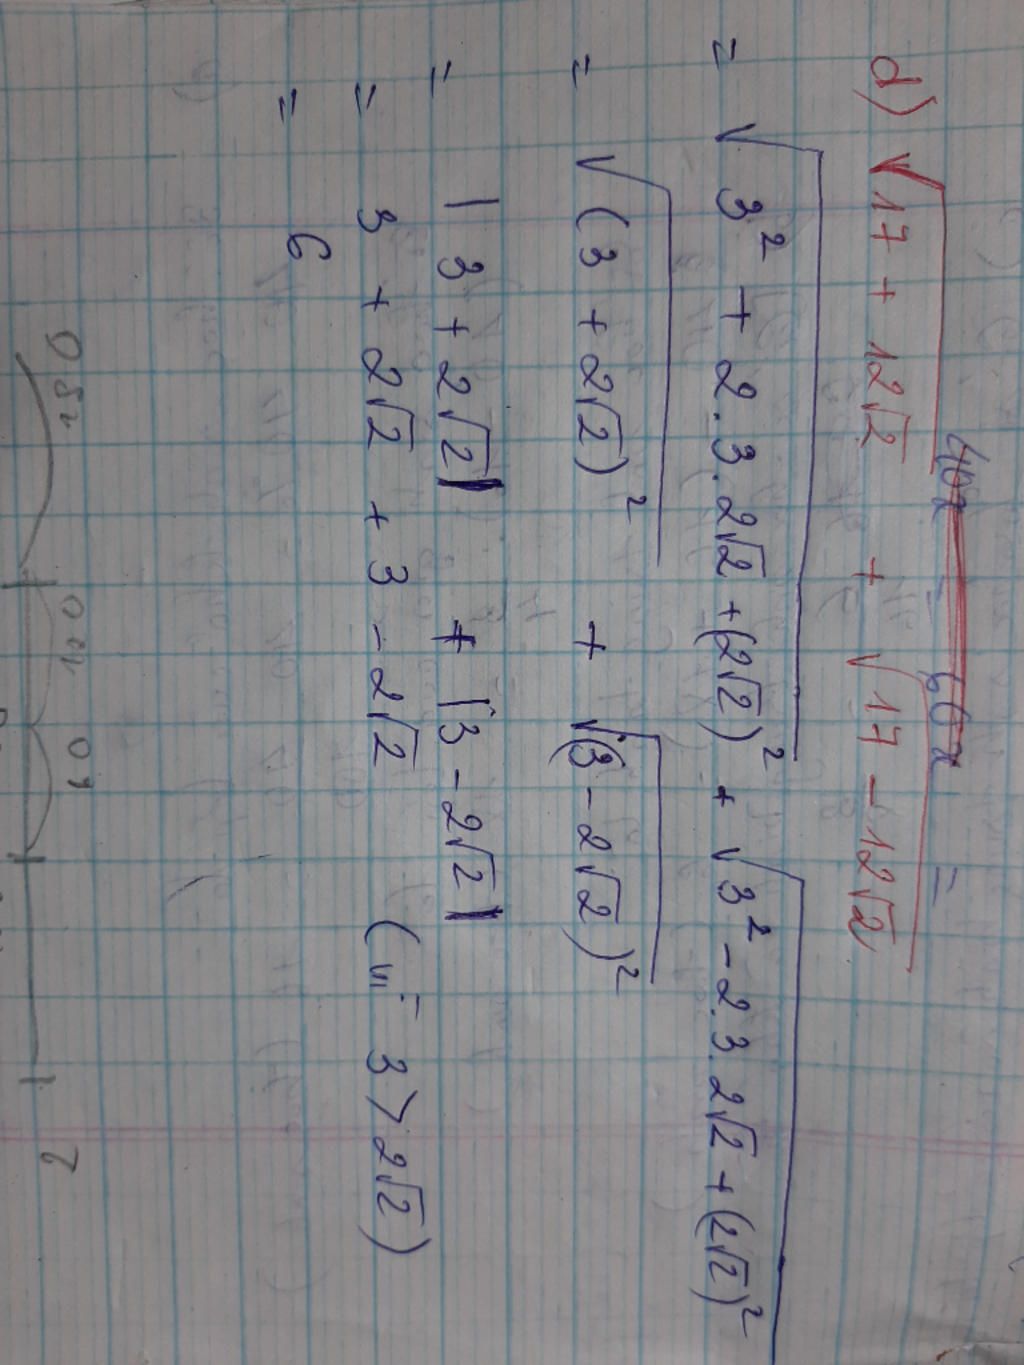 d) √17 + 12√2 + √17 - 12√2
= √3² + 2.3.2√2 + (2√2)² + √3² - 2.3.2√2 + (2√2)²
= √(3 + 2√2)² + √(3 - 2√2)²
= |3 + 2√2| + |3 - 2√2|
= 3 + 2√2 + 3 - 2√2 (vì 3 > 2√2)
= 6
150 100 60
2